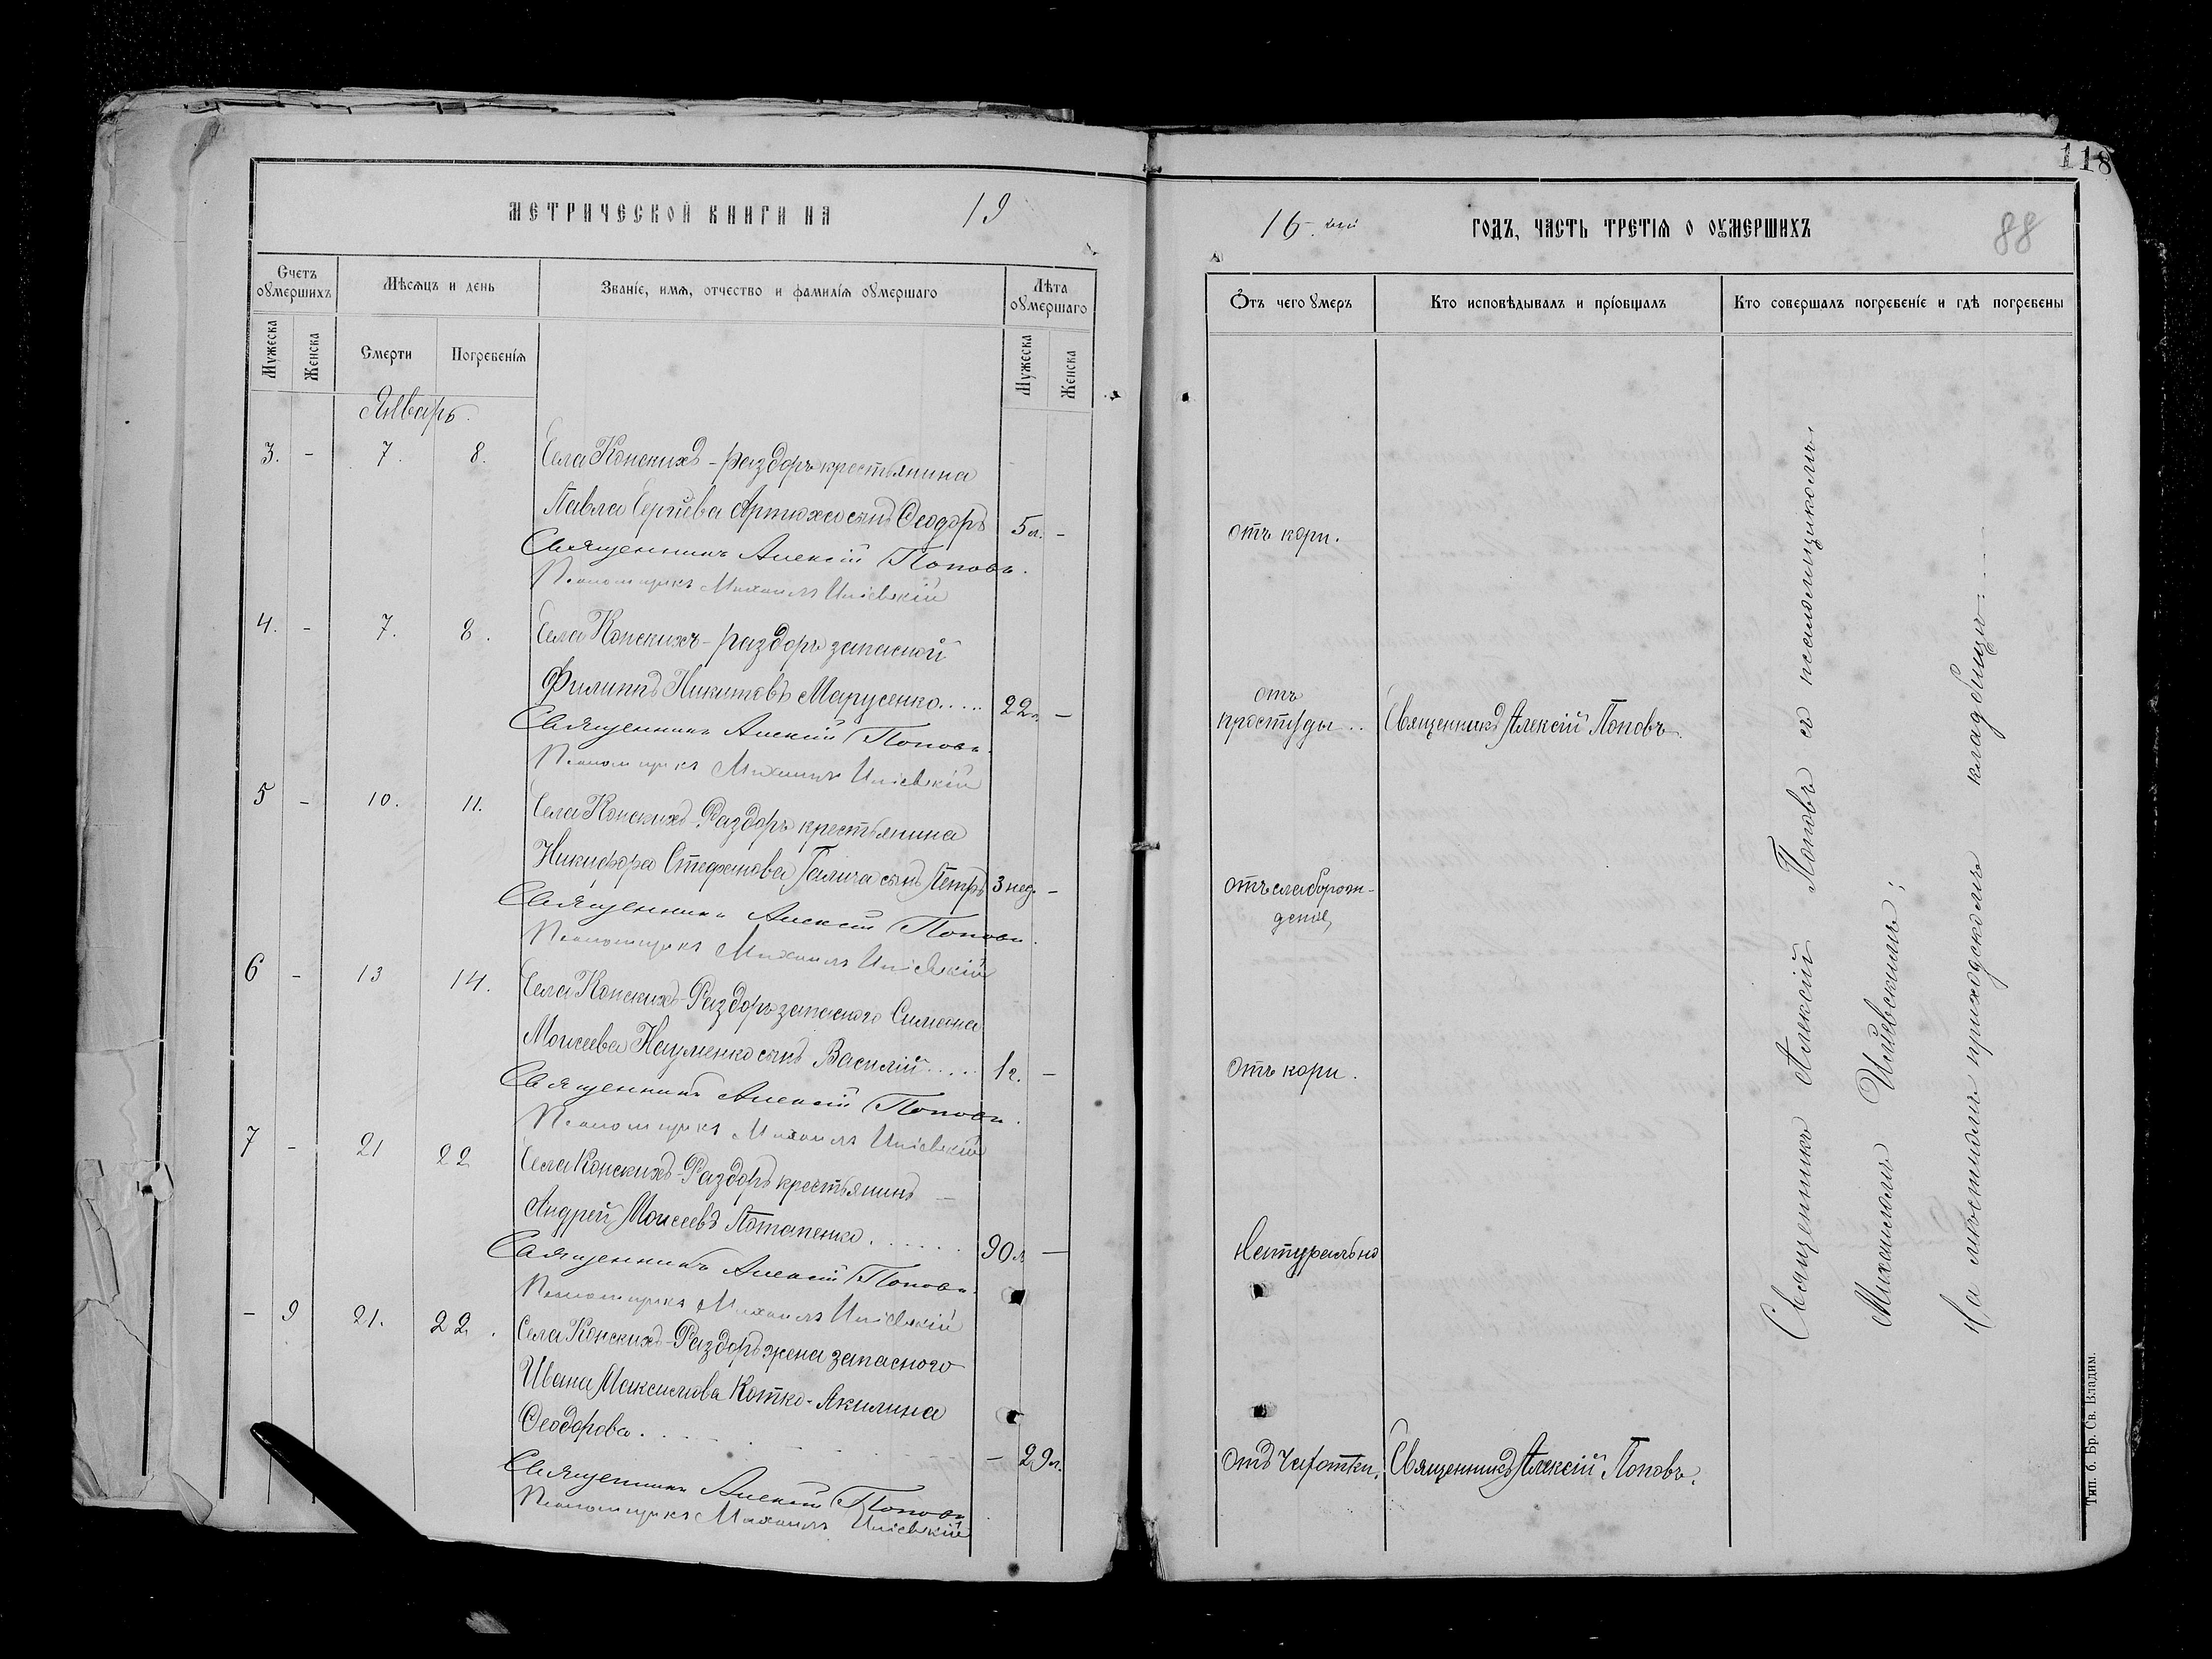 118
МЕТРИЧЕСКОЙ КНИГИ НА 19
16. ый ГОДЪ, ЧАСТЬ ТРЕТІЯ О ОУМЕРШИХЪ
88
Счетъ оумершихъ
Мѣсяцъ и день
Званіе, имя, отчество и фамилія оумершаго
Лѣта оумершаго
Мужеска
Женска
Смерти
Погребенія
Мужеска
Женска
Отъ чего умеръ
Кто исповѣдывалъ и пріобщалъ
Кто совершалъ погребеніе и гдѣ погребены
Январь.
3. - 7. 8. Села Конскихъ-раздоръ крестьянина
Павла Сергіева Артюха сынъ Ѳеодоръ 5 л. -
отъ кори.
Священникъ Алексій Поповъ.
Псаломщикъ Михаилъ Иліевскій
4. - 7. 8. Села Конскихъ-раздоръ запасной
Филиппъ Никитовъ Марусенко..... 22 л. -
отъ
простуды.. Священникъ Алексій Поповъ.
Священникъ Алексій Поповъ.
Псаломщикъ Михаилъ Иліевскій
5 - 10. 11. Села Конскихъ-Раздоръ крестьянина
Никифора Стефанова Галича сынъ Петръ 3 нед. -
отъ слаборож-
денія
Священникъ Алексій Поповъ.
Псаломщикъ Михаилъ Иліевскій
6 - 13 14. Села Конскихъ-Раздоръ запаснаго Симеона
Моисеева Науменко сынъ Василій..... 1 г. -
Отъ кори.
Священникъ Алексій Поповъ.
Псаломщикъ Михаилъ Иліевскій
7 - 21 22 Села Конскихъ-Раздоръ крестьянинъ -
Андрей Моисеевъ Потапенко...... 90 л -
Натурально
Священникъ Алексій Поповъ.
Псаломщикъ Михаилъ Иліевскій
- 9 21. 22. Села Конскихъ-Раздоръ жена запасного
Ивана Максимова Котко-Акилина
Ѳеодорова....... - 29 л.
Отъ Чахотки. Священникъ Алексій Поповъ.
Священникъ Алексій Поповъ
Псаломщикъ Михаилъ Иліевскій
Священникъ Алексій Поповъ съ псаломщикомъ
Михаиломъ Иліевскимъ;
На мѣстномъ приходскомъ кладбищѣ.
Тип. б. Бр. Св. Владим.